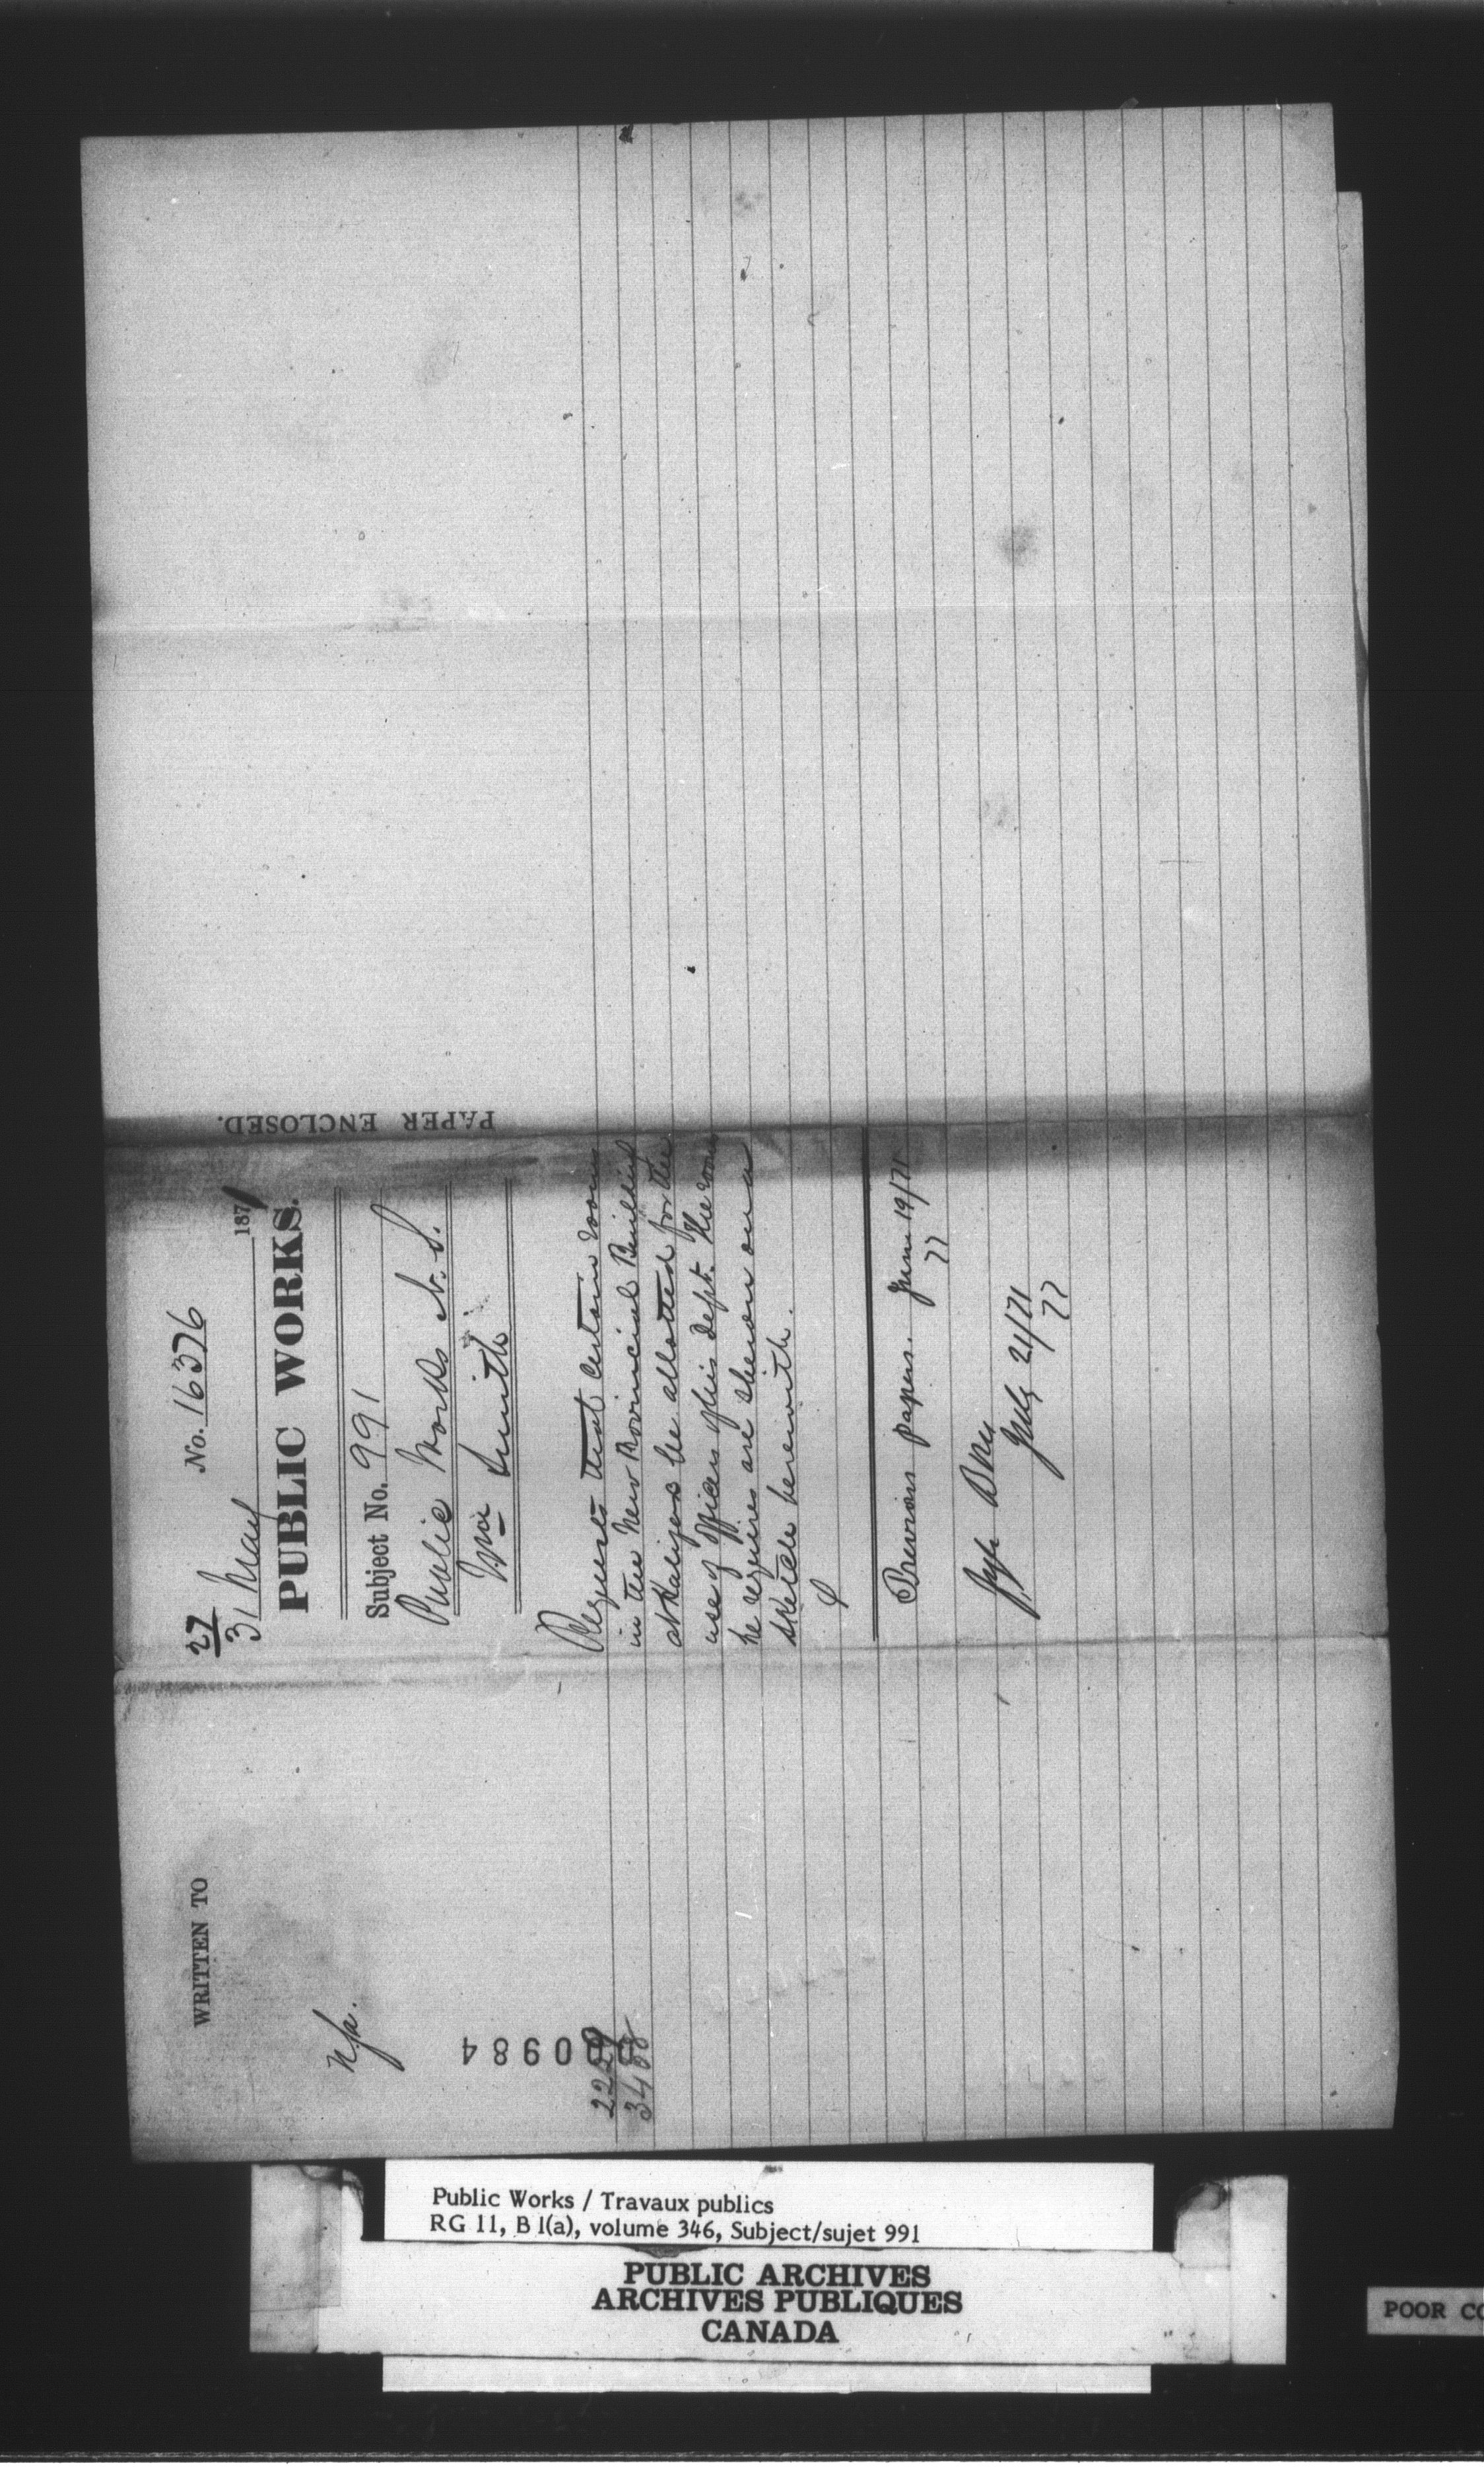 No. 16376
27
31 May 1871
PUBLIC WORKS.
Subject No. 991
Public Works N. S.
Wm Smith
Requests that certain rooms
in the New Provincial Building
at Halifax be allotted for the
use of officers of his dept. The rooms
he requires are shewn on a
sketch herewith.
Previous papers. June 19/71
77
July 21/71
77
PAPER ENCLOSED.
WRITTEN TO
nfa.
00984
3488
Public Works / Travaux publics
RG 11, B 1(a), volume 346, Subject/sujet 991
PUBLIC ARCHIVES
ARCHIVES PUBLIQUES
CANADA
POOR CO